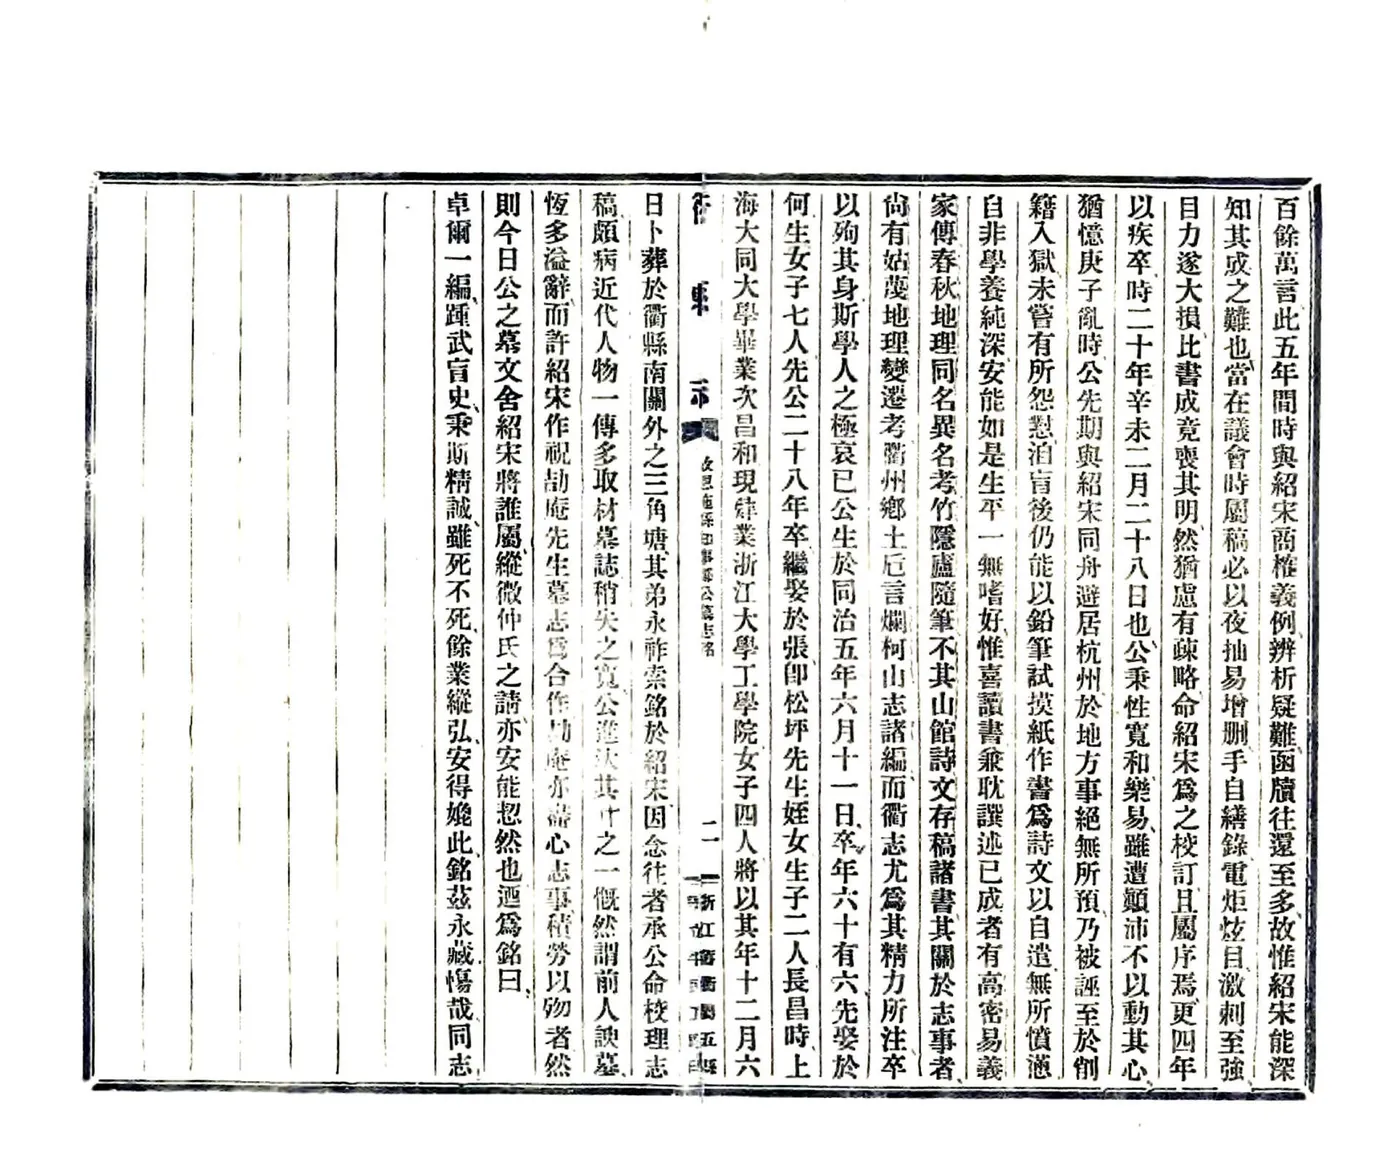 百餘萬言此五年間時與紹宋商榷義例辨析疑難函牘往還至多故惟紹宋能深
知其或之難也當在議會時屬稿必以夜抽易增删手自繕錄電炬炫目激刺至強
目力遂大損比書成竟喪其明然猶慮有疎略命紹宋爲之校訂且屬序焉更四年
以疾卒時二十年辛未二月二十八日也公秉性寬和樂易雖遭顚沛不以動其心
猶憶庚子亂時公先期與紹宋同舟避居杭州於地方事絕無所預乃被誣至於削
籍入獄未嘗有所怨懟泊盲後仍能以鉛筆試摸紙作書爲詩文以自遣無所憤懣
自非學養純深安能如是生平一無嗜好惟喜讀書兼耽譔述已成者有高密易義
家傳春秋地理同名異名考竹隱廬隨筆不其山館詩文存稿諸書其關於志事者
尙有姑蔑地理變遷考衢州鄉土卮言爛柯山志諸編而衢志尤爲其精力所注卒
以殉其身斯學人之極哀已公生於同治五年六月十一日卒年六十有六先娶於
何生女子七人先公二十八年卒繼娶於張卽松坪先生姪女生子二人長昌時上
海大同大學畢業次昌和現肄業浙江大學工學院女子四人將以其年十二月六
志
故恩施縣知事鄭公墓志銘
二
日卜葬於衢縣南關外之三角塘其弟永祚索銘於紹宋因念往者承公命校理志
稿頗病近代人物一傳多取材墓誌稍失之寬公進汰其什之一慨然謂前人諛墓
恆多溢辭而許紹宋作祝劼庵先生墓志爲合作劼庵亦盡心志事積勞以歿者然
則今日公之墓文舍紹宋將誰屬縱微仲氏之請亦安能恝然也迺爲銘曰
卓爾一編踵武盲史秉斯精誠雖死不死餘業縱弘安得媲此銘茲永藏愓哉同志